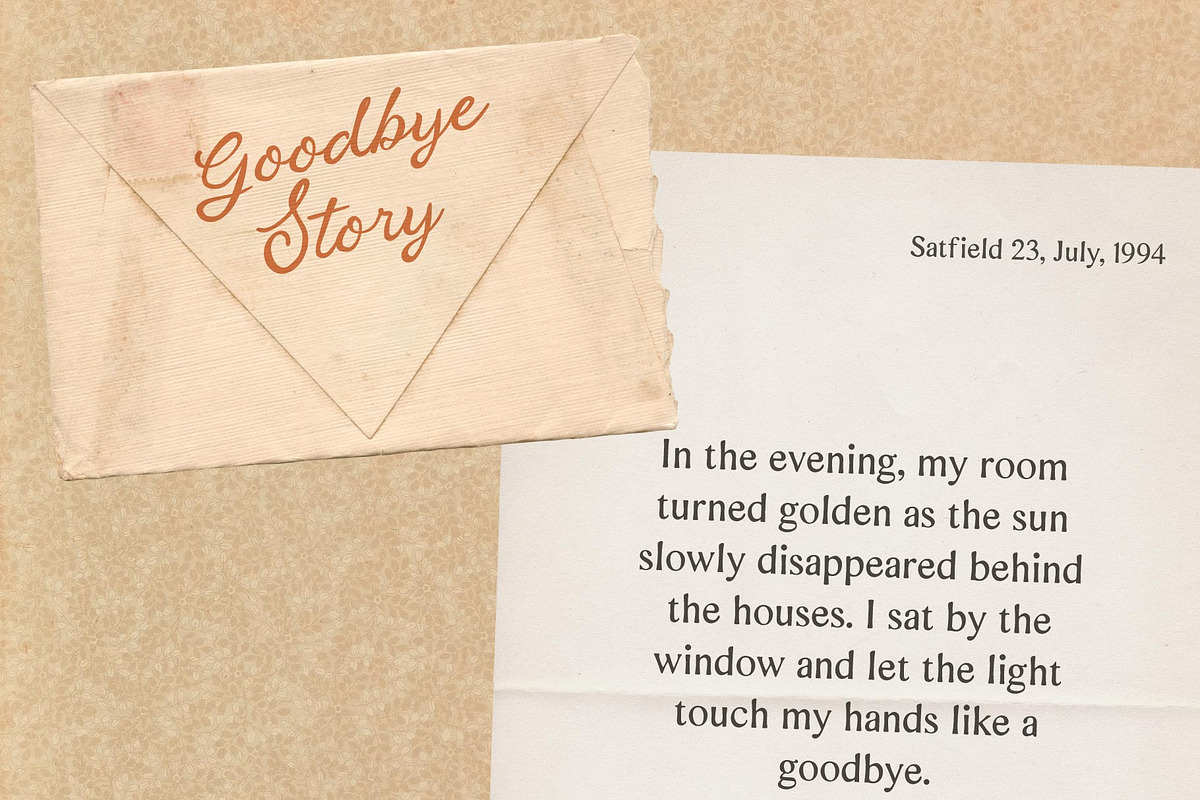 Goodbye
Story
Satfield 23, July, 1994
In the evening, my room
turned golden as the sun
slowly disappeared behind
the houses. I sat by the
window and let the light
touch my hands like a
goodbye.